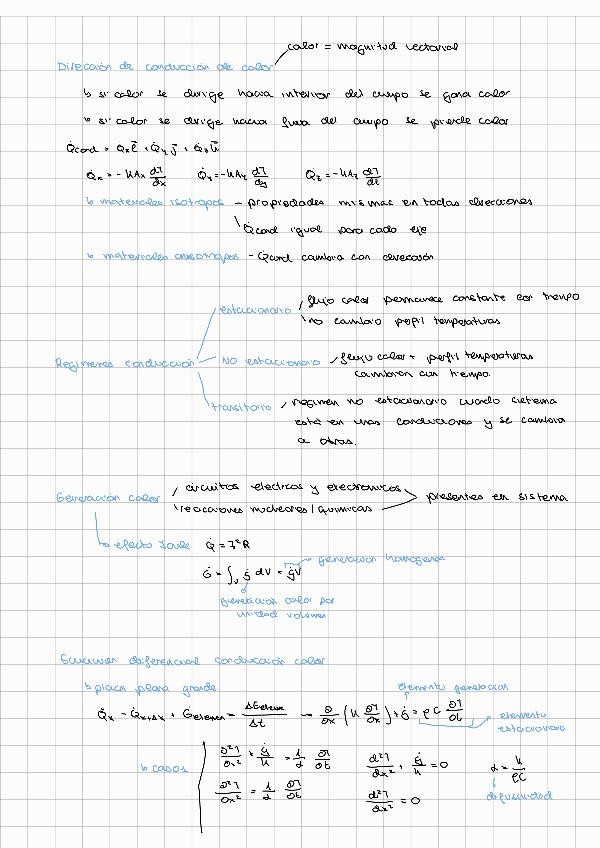 calor = magnitud vectorial
Dirección de conducción de calor
↳ si calor se dirige hacia interior del cuerpo se gana calor
↳ si calor se dirige hacia fuera del cuerpo se pierde calor
Q̇cond = Q̇x i⃗ + Q̇y j⃗ + Q̇z k⃗
Q̇x = -kAx dT/dx   Q̇y = -kAy dT/dy   Q̇z = -kAz dT/dz
↳ materiales isotropos - propiedades mismas en todas direcciones
Q̇cond igual para cada eje
↳ materiales anisotropos - Q̇cond cambia con dirección
estacionario / flujo calor permanece constante con tiempo
\ no cambia perfil temperaturas
Regímenes conducción
NO estacionario / flujo calor + perfil temperaturas
cambian con tiempo.
transitorio / régimen no estacionario cuando sistema
está en unas condiciones y se cambia
a otras.
Generación calor / circuitos electricos y electronicos
\ reacciones nucleares / químicas > presentes en sistema
↳ efecto Joule Q̇ = I²R
generacion homogenea
Ġ = ∫v ġ dV = ġV
generación calor por
unidad volumen
Ecuacion diferencial conducción calor
↳ placa plana grande
elemento generacion
Q̇x - Q̇x+Δx + Ġelemen = ΔEelemen/Δt → ∂/∂x (k ∂T/∂x) + ġ = ρC ∂T/∂t
elemento
estacionario
↳ casos
∂²T/∂x² + ġ/k = 1/α ∂T/∂t   d²T/dx² + ġ/k = 0   α = k/ρC
∂²T/∂x² = 1/α · ∂T/∂t   d²T/dx² = 0
difusividad